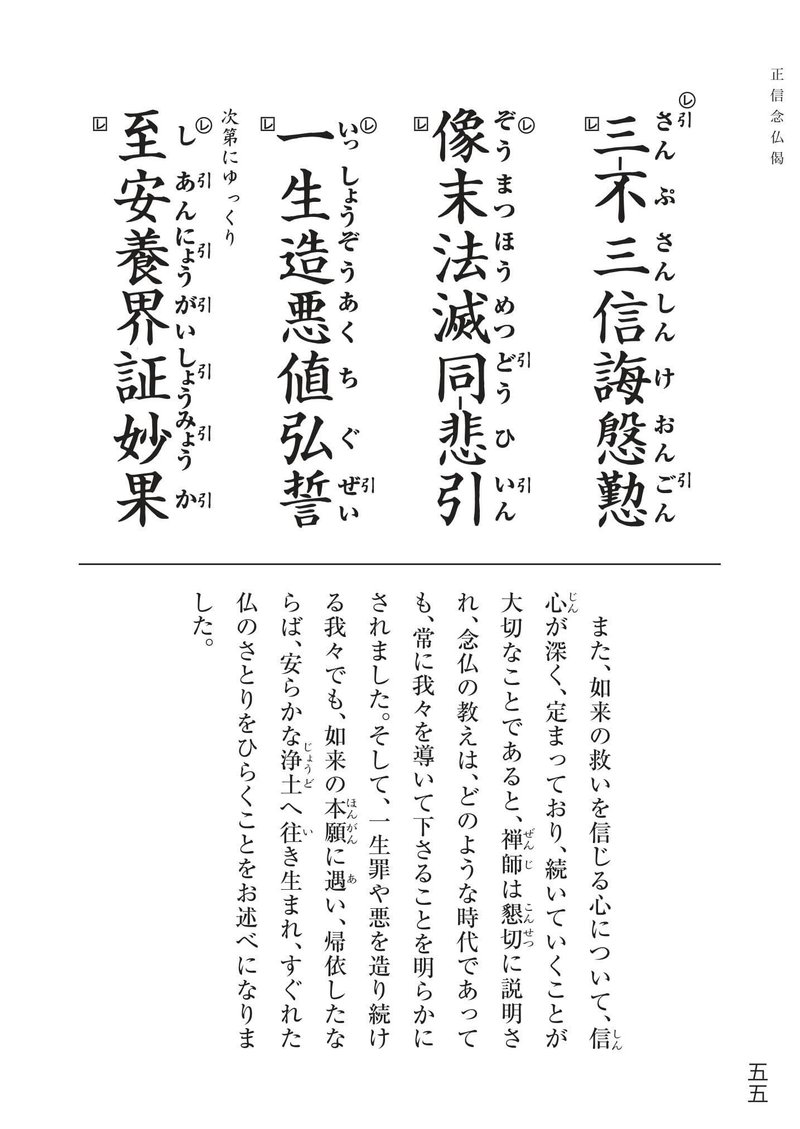 正信念仏偈
㋹引 さん ぷ さん しん け おん ごん引
三不三信誨慇懃
㋹ ぞう まつ ほう めつ どう引 ひ いん引
像末法滅同悲引
㋹ いっ しょう ぞう あく ち ぐ ぜい引
一生造悪値弘誓
次第にゆっくり
㋹ し あん引 にょう引 がい引 しょう引 みょう引 か引
至安養界証妙果
また、如来の救いを信じる心について、信しん
心じんが深く、定まっており、続いていくことが
大切なことであると、禅師ぜんじは懇切こんせつに説明さ
れ、念仏の教えは、どのような時代であって
も、常に我々を導いて下さることを明らかに
されました。そして、一生罪や悪を造り続け
る我々でも、如来の本願ほんがんに遇あい、帰依したな
らば、安らかな浄土じょうどへ往いき生まれ、すぐれた
仏のさとりをひらくことをお述べになりま
した。
五五